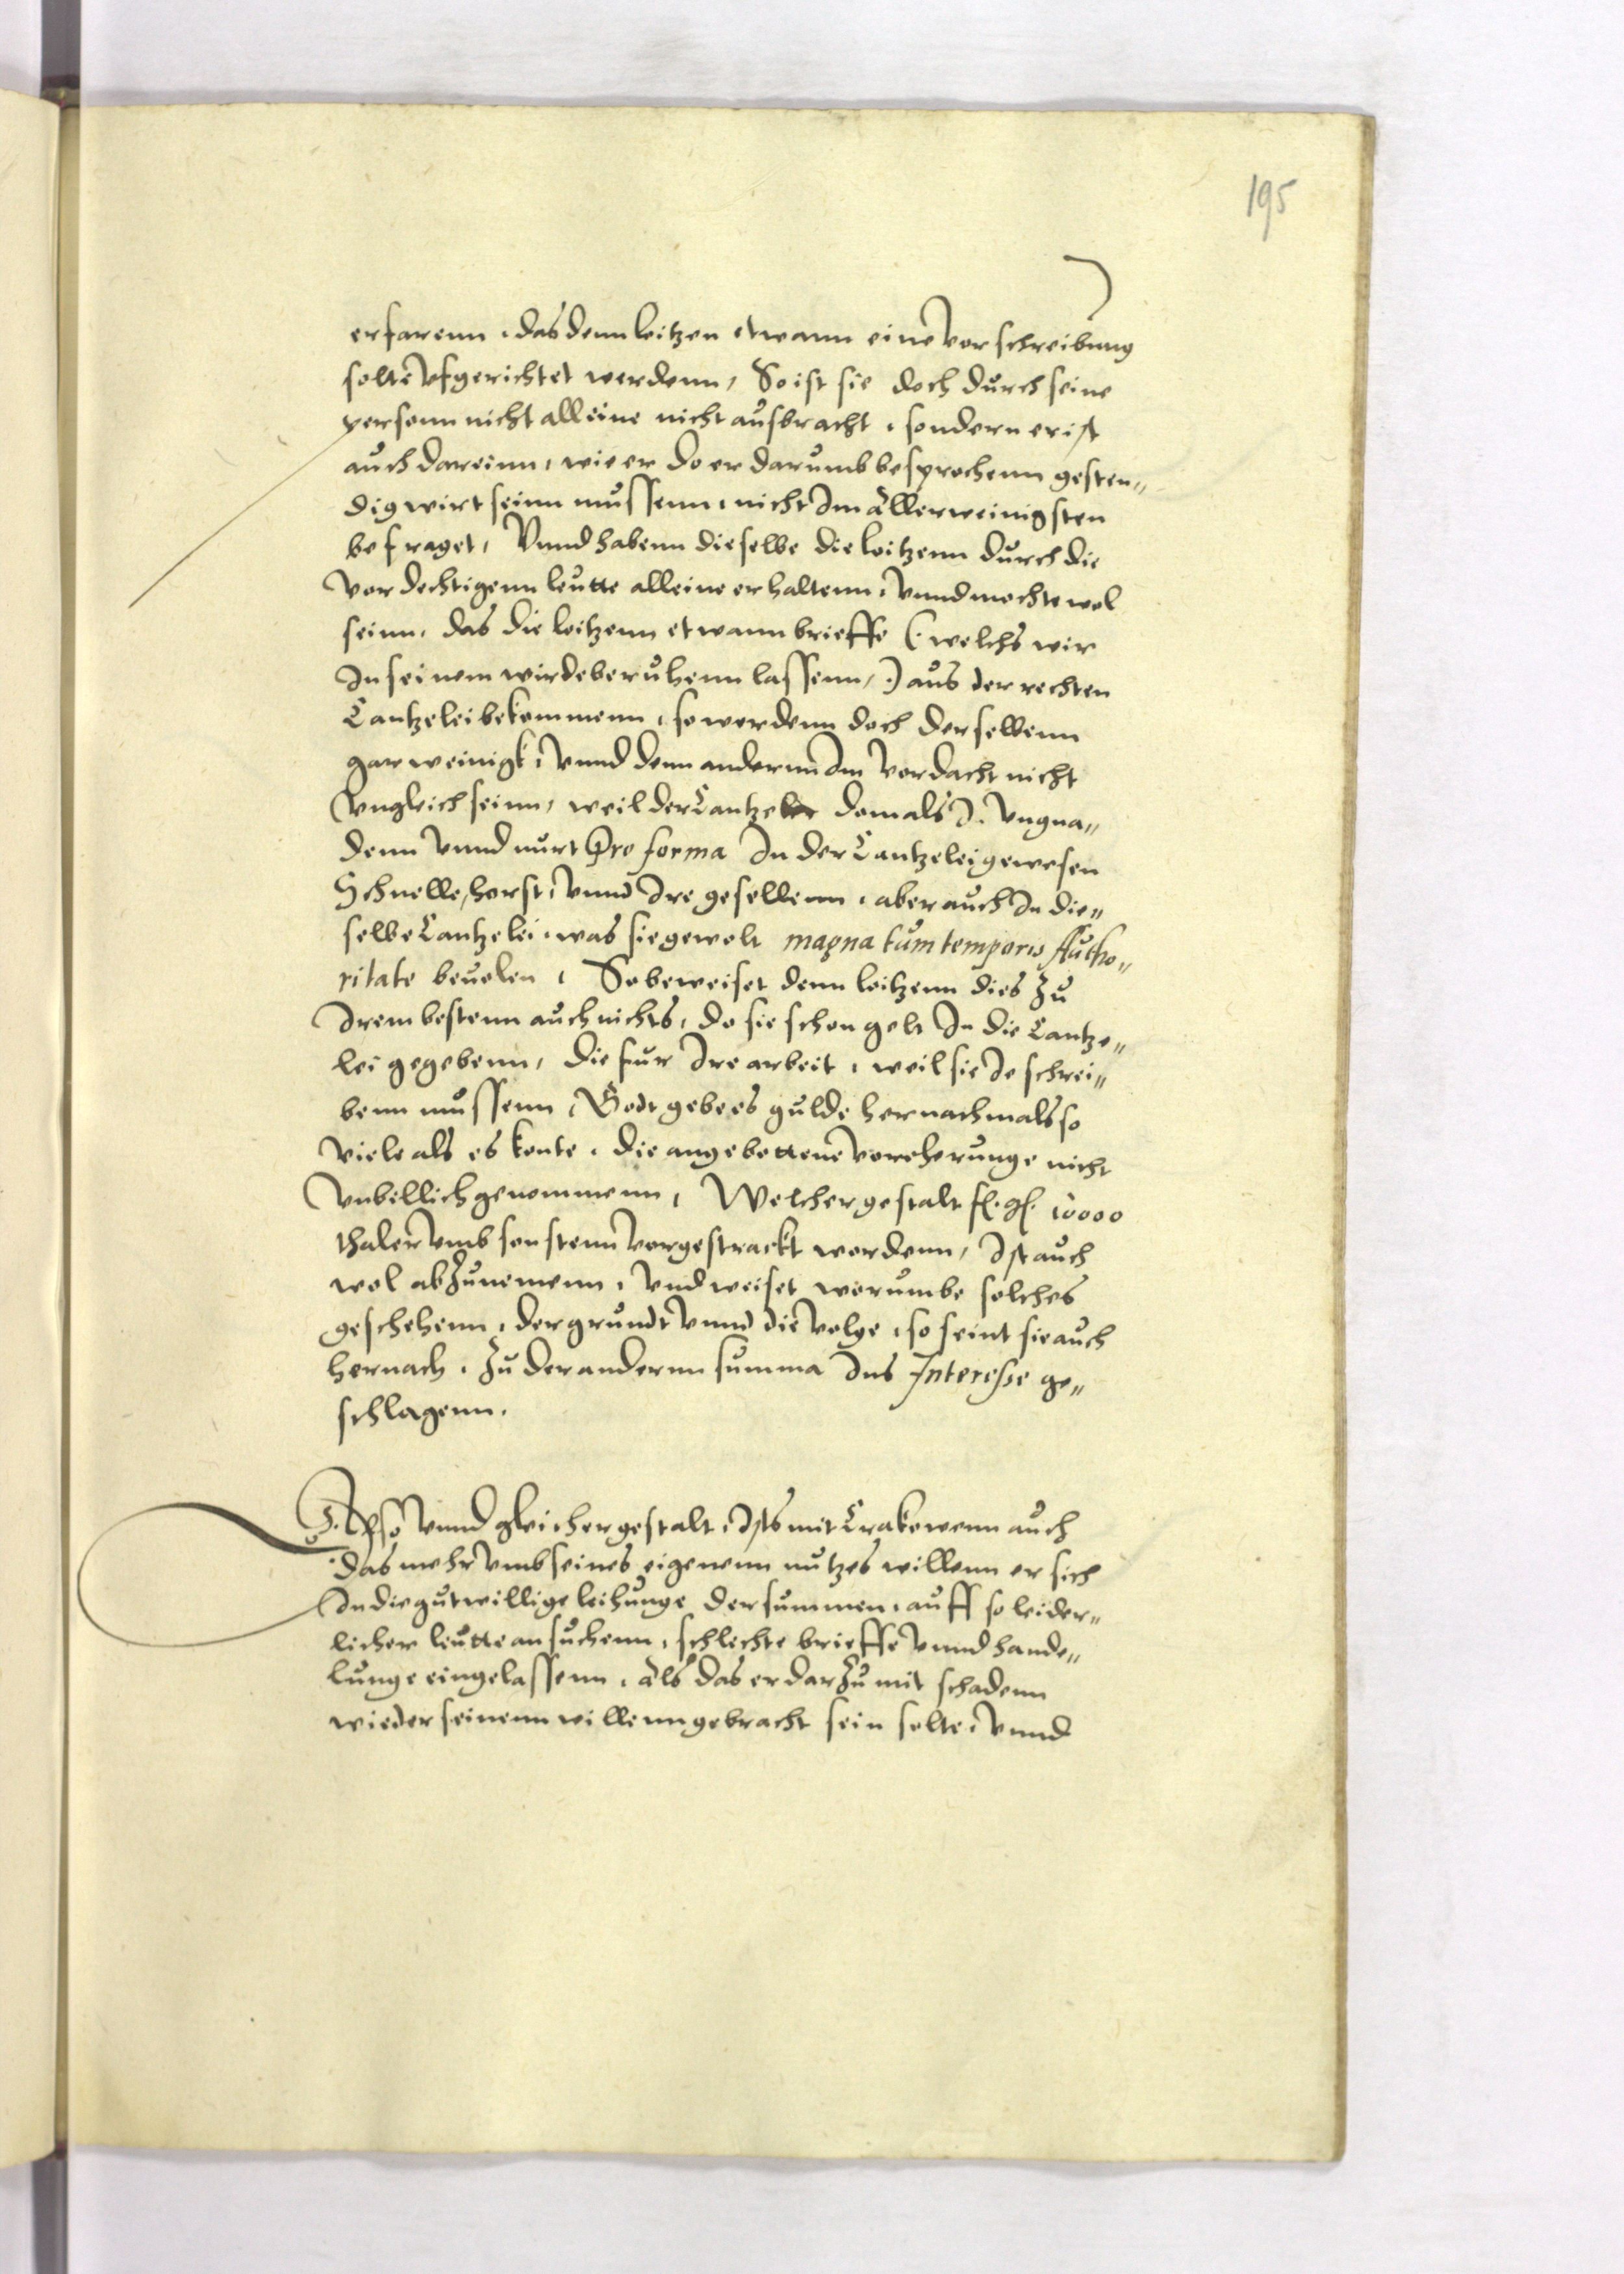 195
erfarenn, das denn loitzen etwann eine vorschreibung
solte ufgerichtet werdenn, So ist sie doch durch seine
personn nicht alleine nicht ausbracht, sondern er ist
auch dareinn, wie er do er darumb besprochenn gesten„
dig wirt seinn mussenn, nicht Im allerweinigsten
befraget, Vnnd habenn dieselbe die loitzenn durch die
vordechtigenn leutte alleine erhaltenn, vnnd mochte wol
seinn, das die loitzenn etwann brieffe (: welchs wir
In seinem wirde beruhenn lassenn, :) aus der rechten
Cantzelei bekommenn, so werdenn doch derselbenn
gar weinigk, vnnd denn andernn Im vordacht nicht
vngleich seinn, weil der Cantzeler domals I. vngna„
denn vnnd nurt Pro forma In der Cantzelei gewesen
Schnelle, horst, vnnd Ire gesellenn, aber auch In die„
selbe Cantzelei, was sie gewolt magna tum temporis Autho„
ritate beuolen, So beweiset denn loitzenn dies Zu
Irem bestenn auch nichts, do sie schon gelt In die Cantze„
lei gegebenn, die fur Ire arbeit, weil sie Je schrei„
benn mussenn, Godt gebe es gulde hernachmals so
viele als es konte, die angebottene vorehrunge nicht
vnbillich genommenn, Welcher gestalt f. g. 10000
thaler vmb sonstenn vorgestrackt wordenn, Ist auch
wol abZunemenn, vnd weiset worumbe solches
geschehenn, der grundt vnnd die volge, so seint sie auch
hernach, Zu der andernn summa Ins Interesse ge„
schlagenn.
Also vnnd gleicher gestalt, Ists mit Crakowenn auch
das mehr vmb seines eigenenn nutzes willenn er sich
In die gutwillige leihunge der summen, auff so leider„
licher leutte ansuchenn, schlechte brieffe vnnd hande„
lunge eingelassenn, als das er darZu mit schadenn
wieder seinenn willenn gebracht sein solte, vnnd